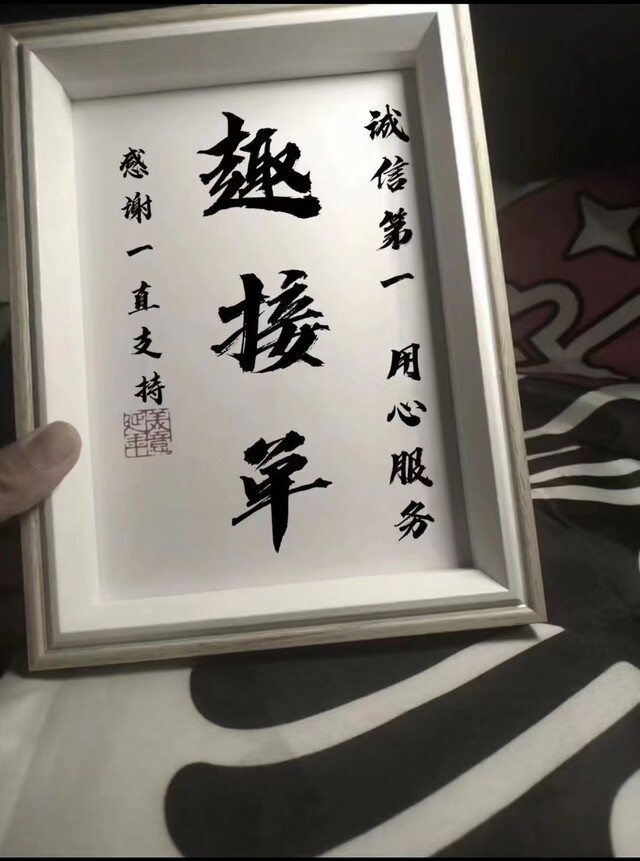 诚信第一 用心服务
趣接单
感谢一直支持
美意延年